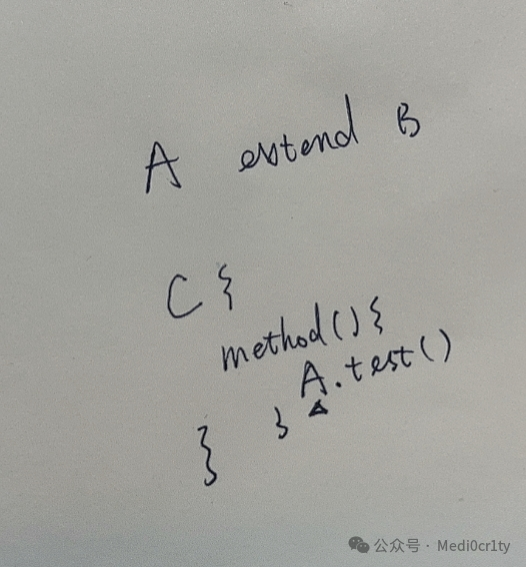 A extend B
C {
method() {
A.test()
}
}
公众号 · Medi0cr1ty